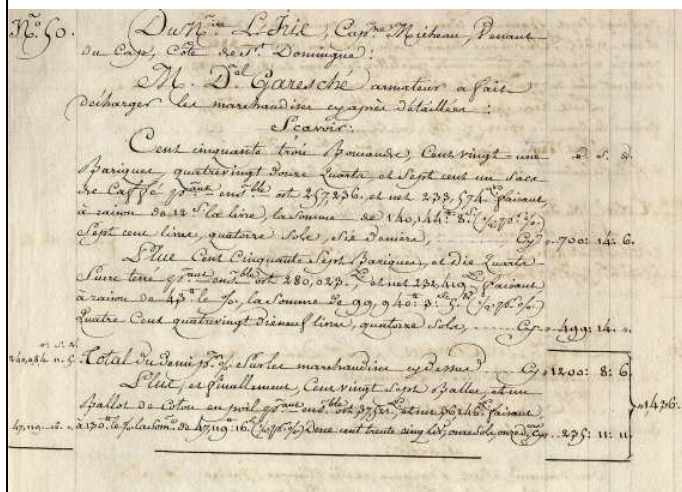 N.º 50. Du N.ire L'Iris, Cap.ne Micheau, Venant
du Cap, Côte de S.t Domingue:
M. D.el Garesché armateur a fait
décharger les marchandises cy après détaillées:
Scavoir:
Cent cinquante trois Boucauds, Cent vingt-une
Bariques, quatrevingt douze Quarts, et Sept cent un Sacs
de Caffé p.ant ens.ble ort 257236. et net 233,574.lt faisant,
à raison de 12.s la livre, la Somme de 140,144.lt 8.s
Sept cent livres, quatorze Sols, Six Deniers, Cy 700: 14: 6.
Plus Cent Cinquante Sept Bariques, et Dix Quarts
Sucre terré p.ant ens.ble ort 280,023.lt et net 232,419.lt faisant
à raison de 43.lt le %, la Somme de 99,940.lt 3.s 5.d
Quatre Cent quatrevingt dixneuf livres, quatorze Sols, Cy 499: 14. ”.
240,084. 11. 5. Total du Demi p.r % Sur les marchandises cy dessus Cy 1200: 8: 6.
Plus, et finallement, Cent vingt Sept Balles, et un
Ballot de Coton en poil p.ant ens.ble ort et net 36246.lt faisant, 1436.
47,119. 16. ”. à 130.lt le % la Som.e de 47,119.lt 16.s Deux cent trente cinq liv., onze Sols, onze d. Cy 235: 11: 11.